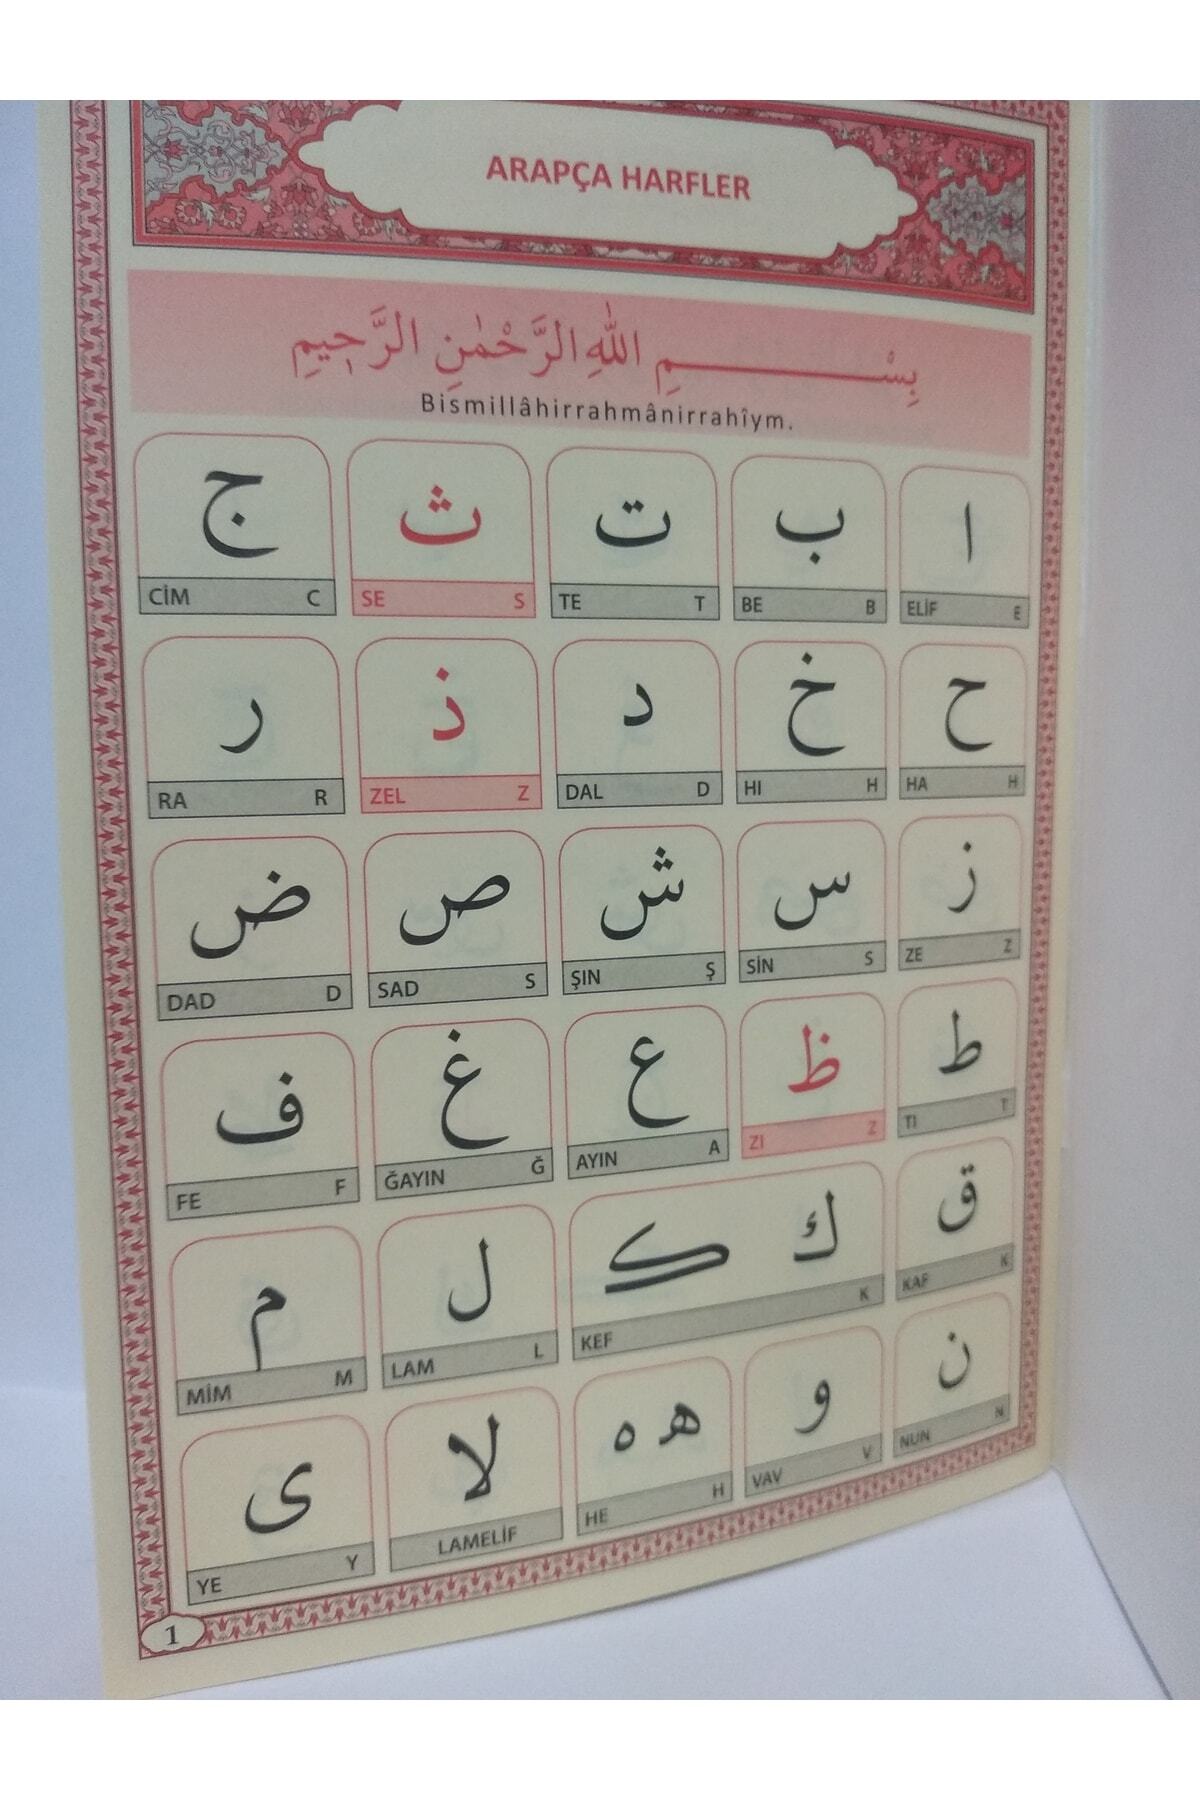 ARAPÇA HARFLER
بِسْمِ اللّٰهِ الرَّحْمٰنِ الرَّحِيمِ
Bismillâhirrahmânirrahîym.
ا ب ت ث ج
ELİF E BE B TE T SE S CİM C
ح خ د ذ ر
HA H HI H DAL D ZEL Z RA R
ز س ش ص ض
ZE Z SİN S ŞIN Ş SAD S DAD D
ط ظ ع غ ف
TI T ZI Z AYIN A ĞAYIN Ğ FE F
ق ك ک ل م
KAF K KEF K LAM L MİM M
ن و ه ه لا ى
NUN N VAV V HE H LAMELİF YE Y
1